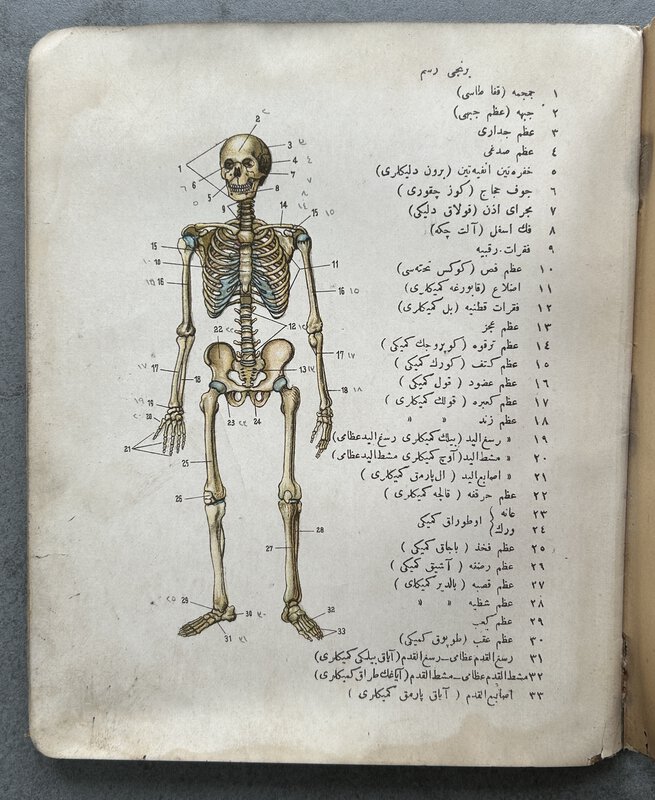 برنجی رسم
١ جمجمه (قفا طاسی)
٢ جبهه (عظم جبهی)
٣ عظم جداری
٤ عظم صدغی
٥ حفره‌تین انفیه‌تین (برون دلیکلری)
٦ جوف حجاج (کوز چقوری)
٧ مجرای اذن (قولاق دلیکی)
٨ فك اسفل (آلت چکه)
٩ فقرات رقبیه
١٠ عظم قص (کوکس تخته‌سی)
١١ اضلاع (قابورغه کمیکلری)
١٢ فقرات قطنیه (بل کمیکلری)
١٣ عظم عجز
١٤ عظم ترقوه (کوپروجك کمیکی)
١٥ عظم کتف (کورك کمیکی)
١٦ عظم عضود (قول کمیکی)
١٧ عظم کعبره (قولك کمیکلری)
١٨ عظم زند » »
١٩ » رسغ الید (بیلك کمیکلری رسغ الید عظامی)
٢٠ » مشط الید (آوج کمیکلری مشط الید عظامی)
٢١ » اصابع الید (ال پارمق کمیکلری)
٢٢ عظم حرقفه (قالچه کمیکلری)
٢٣ عانه
٢٤ ورك } اوطوراق کمیکی
٢٥ عظم فخذ (باجاق کمیکی)
٢٦ عظم رضفه (آشیق کمیکی)
٢٧ عظم قصبه (بالدیر کمیکلری)
٢٨ عظم شظیه » »
٢٩ عظم کعب
٣٠ عظم عقب (طوپوق کمیکی)
٣١ رسغ القدم عظامی - رسغ القدم (آیاق بیلکی کمیکلری)
٣٢ مشط القدم عظامی - مشط القدم (آیاغك طراق کمیکلری)
٣٣ اصابع القدم (آیاق پارمق کمیکلری)
2
3
4
1
7
6
8
5
9
14
15
15
10
11
16
16
22
12
17
13
17
18
18
19
20
23
24
21
25
26
28
27
29
30
32
31
33